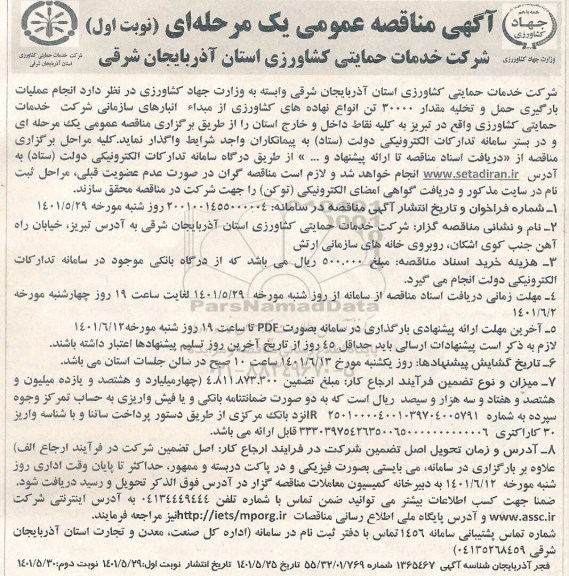 آگهی مناقصه عمومی یک مرحله‌ای (نوبت اول)
شرکت خدمات حمایتی کشاورزی استان آذربایجان شرقی
جهاد کشاورزی
وزارت جهاد کشاورزی
شرکت خدمات حمایتی کشاورزی
استان آذربایجان شرقی
شرکت خدمات حمایتی کشاورزی استان آذربایجان شرقی وابسته به وزارت جهاد کشاورزی در نظر دارد انجام عملیات
بارگیری حمل و تخلیه مقدار ۳۰۰۰۰ تن انواع نهاده های کشاورزی از مبداء انبارهای سازمانی شرکت خدمات
حمایتی کشاورزی واقع در تبریز به کلیه نقاط داخل و خارج استان را از طریق برگزاری مناقصه عمومی یک مرحله ای
و در بستر سامانه تدارکات الکترونیکی دولت (ستاد) به پیمانکاران واجد شرایط واگذار نماید.کلیه مراحل برگزاری
مناقصه از «دریافت اسناد مناقصه تا ارائه پیشنهاد و ... » از طریق درگاه سامانه تدارکات الکترونیکی دولت (ستاد) به
آدرس www.setadiran.ir انجام خواهد شد و لازم است مناقصه گران در صورت عدم عضویت قبلی، مراحل ثبت
نام در سایت مذکور و دریافت گواهی امضای الکترونیکی (توکن) را جهت شرکت در مناقصه محقق سازند.
۱ـ شماره فراخوان و تاریخ انتشار آگهی مناقصه در سامانه: ۲۰۰۱۰۰۱۴۵۵۰۰۰۰۰۴ روز شنبه مورخه ۱۴۰۱/۵/۲۹
۲ـ نام و نشانی مناقصه گزار: شرکت خدمات حمایتی کشاورزی استان آذربایجان شرقی به آدرس تبریز، خیابان راه
آهن جنب کوی اشکان، روبروی خانه های سازمانی ارتش
۳ـ هزینه خرید اسناد مناقصه: مبلغ ۵۰۰.۰۰۰ ریال می باشد که از درگاه بانکی موجود در سامانه تدارکات
الکترونیکی دولت انجام می گیرد.
۴ـ مهلت زمانی دریافت اسناد مناقصه از سامانه از روز شنبه مورخه ۱۴۰۱/۵/۲۹ لغایت ساعت ۱۹ روز چهارشنبه مورخه
۱۴۰۱/۶/۲
۵ـ آخرین مهلت ارائه پیشنهادی بارگذاری در سامانه بصورت PDF تا ساعت ۱۹ روز شنبه مورخه۱۴۰۱/۶/۱۲
لازم به ذکر است پیشنهادات ارسالی باید حداقل ۴۵ روز از تاریخ آخرین روز تسلیم پیشنهادها اعتبار داشته باشند.
۶ـ تاریخ گشایش پیشنهادها: روز یکشنبه مورخ ۱۴۰۱/۶/۱۳ ساعت ۱۰ صبح در سالن جلسات استان می باشد.
۷ـ میزان و نوع تضمین فرآیند ارجاع کار: مبلغ تضمین ۴.۸۱۱.۸۷۳.۳۰۰ (چهارمیلیارد و هشتصد و یازده میلیون و
هشتصد و هفتاد و سه هزار و سیصد ریال است که به دو صورت ضمانتنامه بانکی و یا فیش واریزی به حساب تمرکز وجوه
سپرده به شماره IR۲۵۰۱۰۰۰۰۴۰۰۱۰۳۹۷۰۴۰۰۵۷۹۱ نزد بانک مرکزی از طریق دستور پرداخت ساتنا و با شناسه واریز
۳۰ کاراکتری قابل ارائه می باشد.
۸ـ آدرس و زمان تحویل اصل تضمین شرکت در فرایند ارجاع کار: اصل تضمین شرکت در فرآیند ارجاع الف)
علاوه بر بارگزاری در سامانه، می بایستی بصورت فیزیکی و در پاکت دربسته و ممهور، حداکثر تا پایان وقت اداری روز
شنبه مورخه ۱۴۰۱/۶/۱۲ به دبیرخانه کمیسیون معاملات مناقصه گزار در آدرس فوق الذکر تحویل و رسید دریافت شود.
ضمنا جهت کسب اطلاعات بیشتر می توانید ضمن تماس با شماره تلفن ۰۴۱۳۴۴۴۹۴۴۴ به آدرس اینترنتی شرکت
www.assc.ir و آدرس پایگاه ملی اطلاع رسانی مناقصات http://iets/mporg.ir نیز مراجعه فرمایند.
شماره تماس پشتیبانی سامانه ۱۴۵۶ تماس با دفتر ثبت نام در سامانه (اداره کل صنعت، معدن و تجارت استان آذربایجان شرقی
(۰۴۱۳۵۲۶۸۴۵۹
فجر آذربایجان شناسه آگهی ۱۳۶۵۴۶۷ شماره ۵۵/۳۲/۰۱/۷۶۹ تاریخ ۱۴۰۱/۵/۲۵ تاریخ انتشار نوبت اول:۱۴۰۱/۵/۲۹ نوبت دوم:۱۴۰۱/۵/۳۰
ParsNamadData